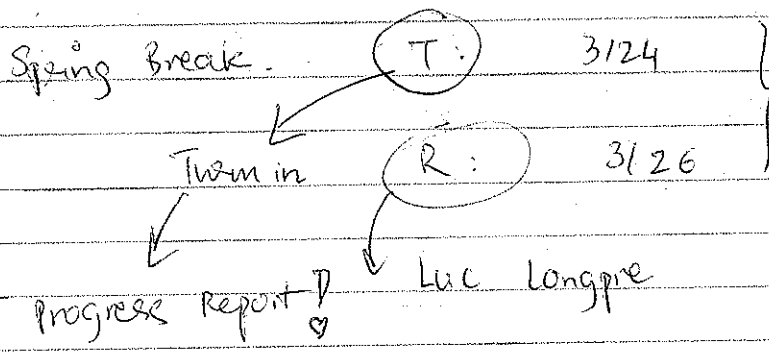 Spring Break. T: 3/24
Turn in R: 3/26
Progress Report! Luc Longpre